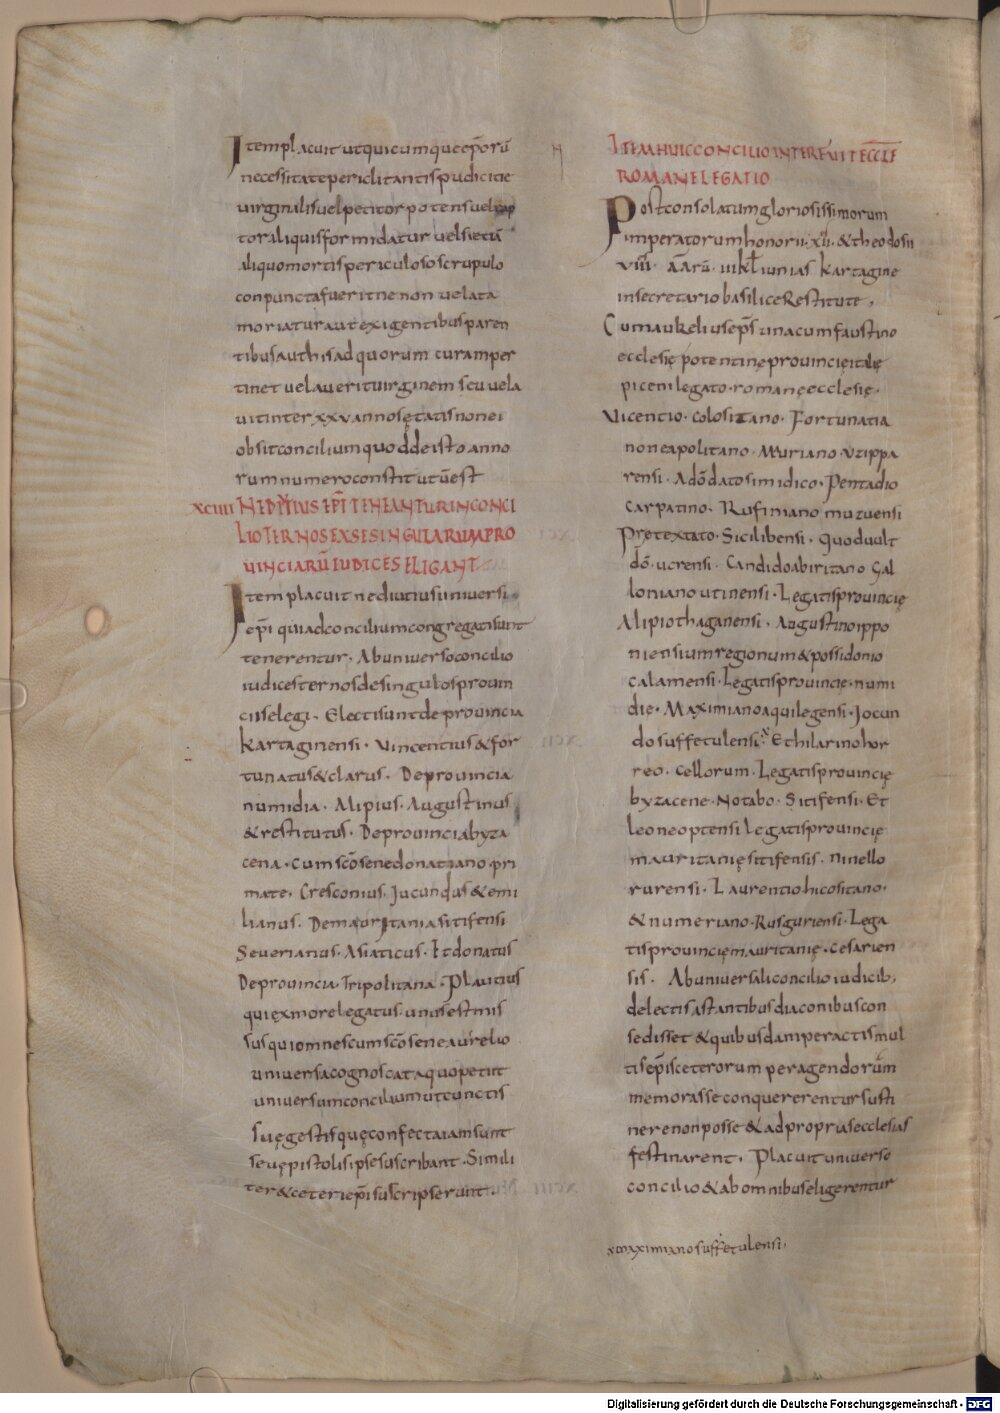 Item placuit ut quicumque ep̄orū
necessitate periclitantis pudicitie
virginalis vel petitor potens vel rap
tor aliquis formidatur vel si etiā
aliquo mortis periculoso scrupulo
conpuncta fuerit ne non velata
moriatur aut exigentibus paren
tibus aut his ad quorum curam per
tinet velaverit virginem seu vela
vit inter xxv annos ętatis non ei
obsit concilium quod de isto anno
rum numero constitutū est
XCIIII NE DIVTIUS EP̄I TENEANTUR IN CONCI
LIO TERNOS EX SE SINGULARUM PRO
VINCIARŪ IUDICES ELIGANT
Item placuit ne diutius universi
ep̄i qui ad concilium congregati sunt
tenerentur. Ab universo concilio
iudices ternos de singulos provin
ciis elegi. Electi sunt de provincia
Kartaginensi. Vincentius & for
tunatus & clarus. De provincia
numidia. Alipius. Augustinus
& restitutus. De provincia byza
cena. cum sc̄o sene donatiano pri
mate. Cresconius. Jucundus & emi
lianus. De mauritania sitifensi
Severianus. Asiaticus. Et donatus
De provincia Tripolitana. Plautius
qui ex more legatus. unus est mis
sus qui omnes cum sc̄o sene aurelio
universa cognoscat a quo petiit
universum concilium ut cunctis
suę gestis quę confecta iam sunt
seu ępistolis ipse suscribant. Simili
ter & ceteri ep̄i suscripserunt.
ITEM HUIC CONCILIO INTEREVIT ECCLE
ROMANE LEGATIO
Post consolatum gloriosissimorum
imperatorum honorii. xii. & theodosii
viii. āārū. iii kl iunias Kartagine
in secretario basilice Restitute,
Cum aureliuseps̄ una cum faustino
ecclesię potentinę provincię italię
piceni legato. romanę ecclesię.
Vicentio. colositano. Fortunatia
no neapolitano. Muriano. Vzippa
rensi. Adōdato simidico. Pentadio
carpatino. Rufiniano muzuensi
Pretextato. Sicilibensi. Quodvult
dō. ucrensi. Candido abiritano Gal
loniano utinensi. Legatis provincię
Alipio thaganensi. Augustino ippo
niensium regionum & possidonio
calamensi. Legatis provincię. numi
die. Maximiano aquilegensi. Jocun
do suffetulensi. x Et hilarino hor
reo. cellorum. Legatis provincię
byzacene. Notabo. Sitifensi. Et
leone optensi Legatis provincię
mauritanię sitifensis. Ninello
rurensi. Laurentio hicositano.
& numeriano. Rusguriensi. Lega
tis provincię mauritanię. cesarien
sis. Ab universali concilio iudicib;
delectis astantibus diaconibus con
sedisset & quibusdam peractis mul
tis ep̄is ceterorum peragendorum
memorasse conquererentur susti
nere non posse & ad proprias ecclesias
festinarent. Placuit universo
concilio & ab omnibus eligerentur
x maximiano suffetulensi,
Digitalisierung gefördert durch die Deutsche Forschungsgemeinschaft - DFG